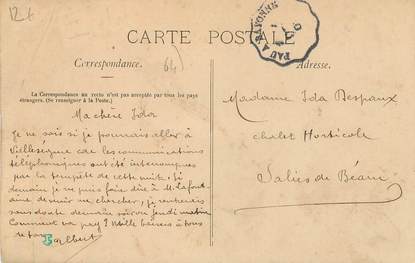 126
CARTE POSTALE
PAU A BAYONNE
Correspondance.
64
Adresse.
La Correspondance au recto n'est pas acceptée par tous les pays
étrangers. (Se renseigner à la Poste.)
Ma chère Ida
Je ne sais si je pourrais aller à
Villeségure car les communications
téléphoniques ont été interrompues
par la tempête de cette nuit. Si
demain je ne puis faire dire à M. Lafont
de venir me chercher, je rentrerais
sans doute demain soir ou jeudi matin
Comment va ? Mille baisers à tous
Albert
Madame Ida Despaux
chalet Horticole
Salies de Béarn